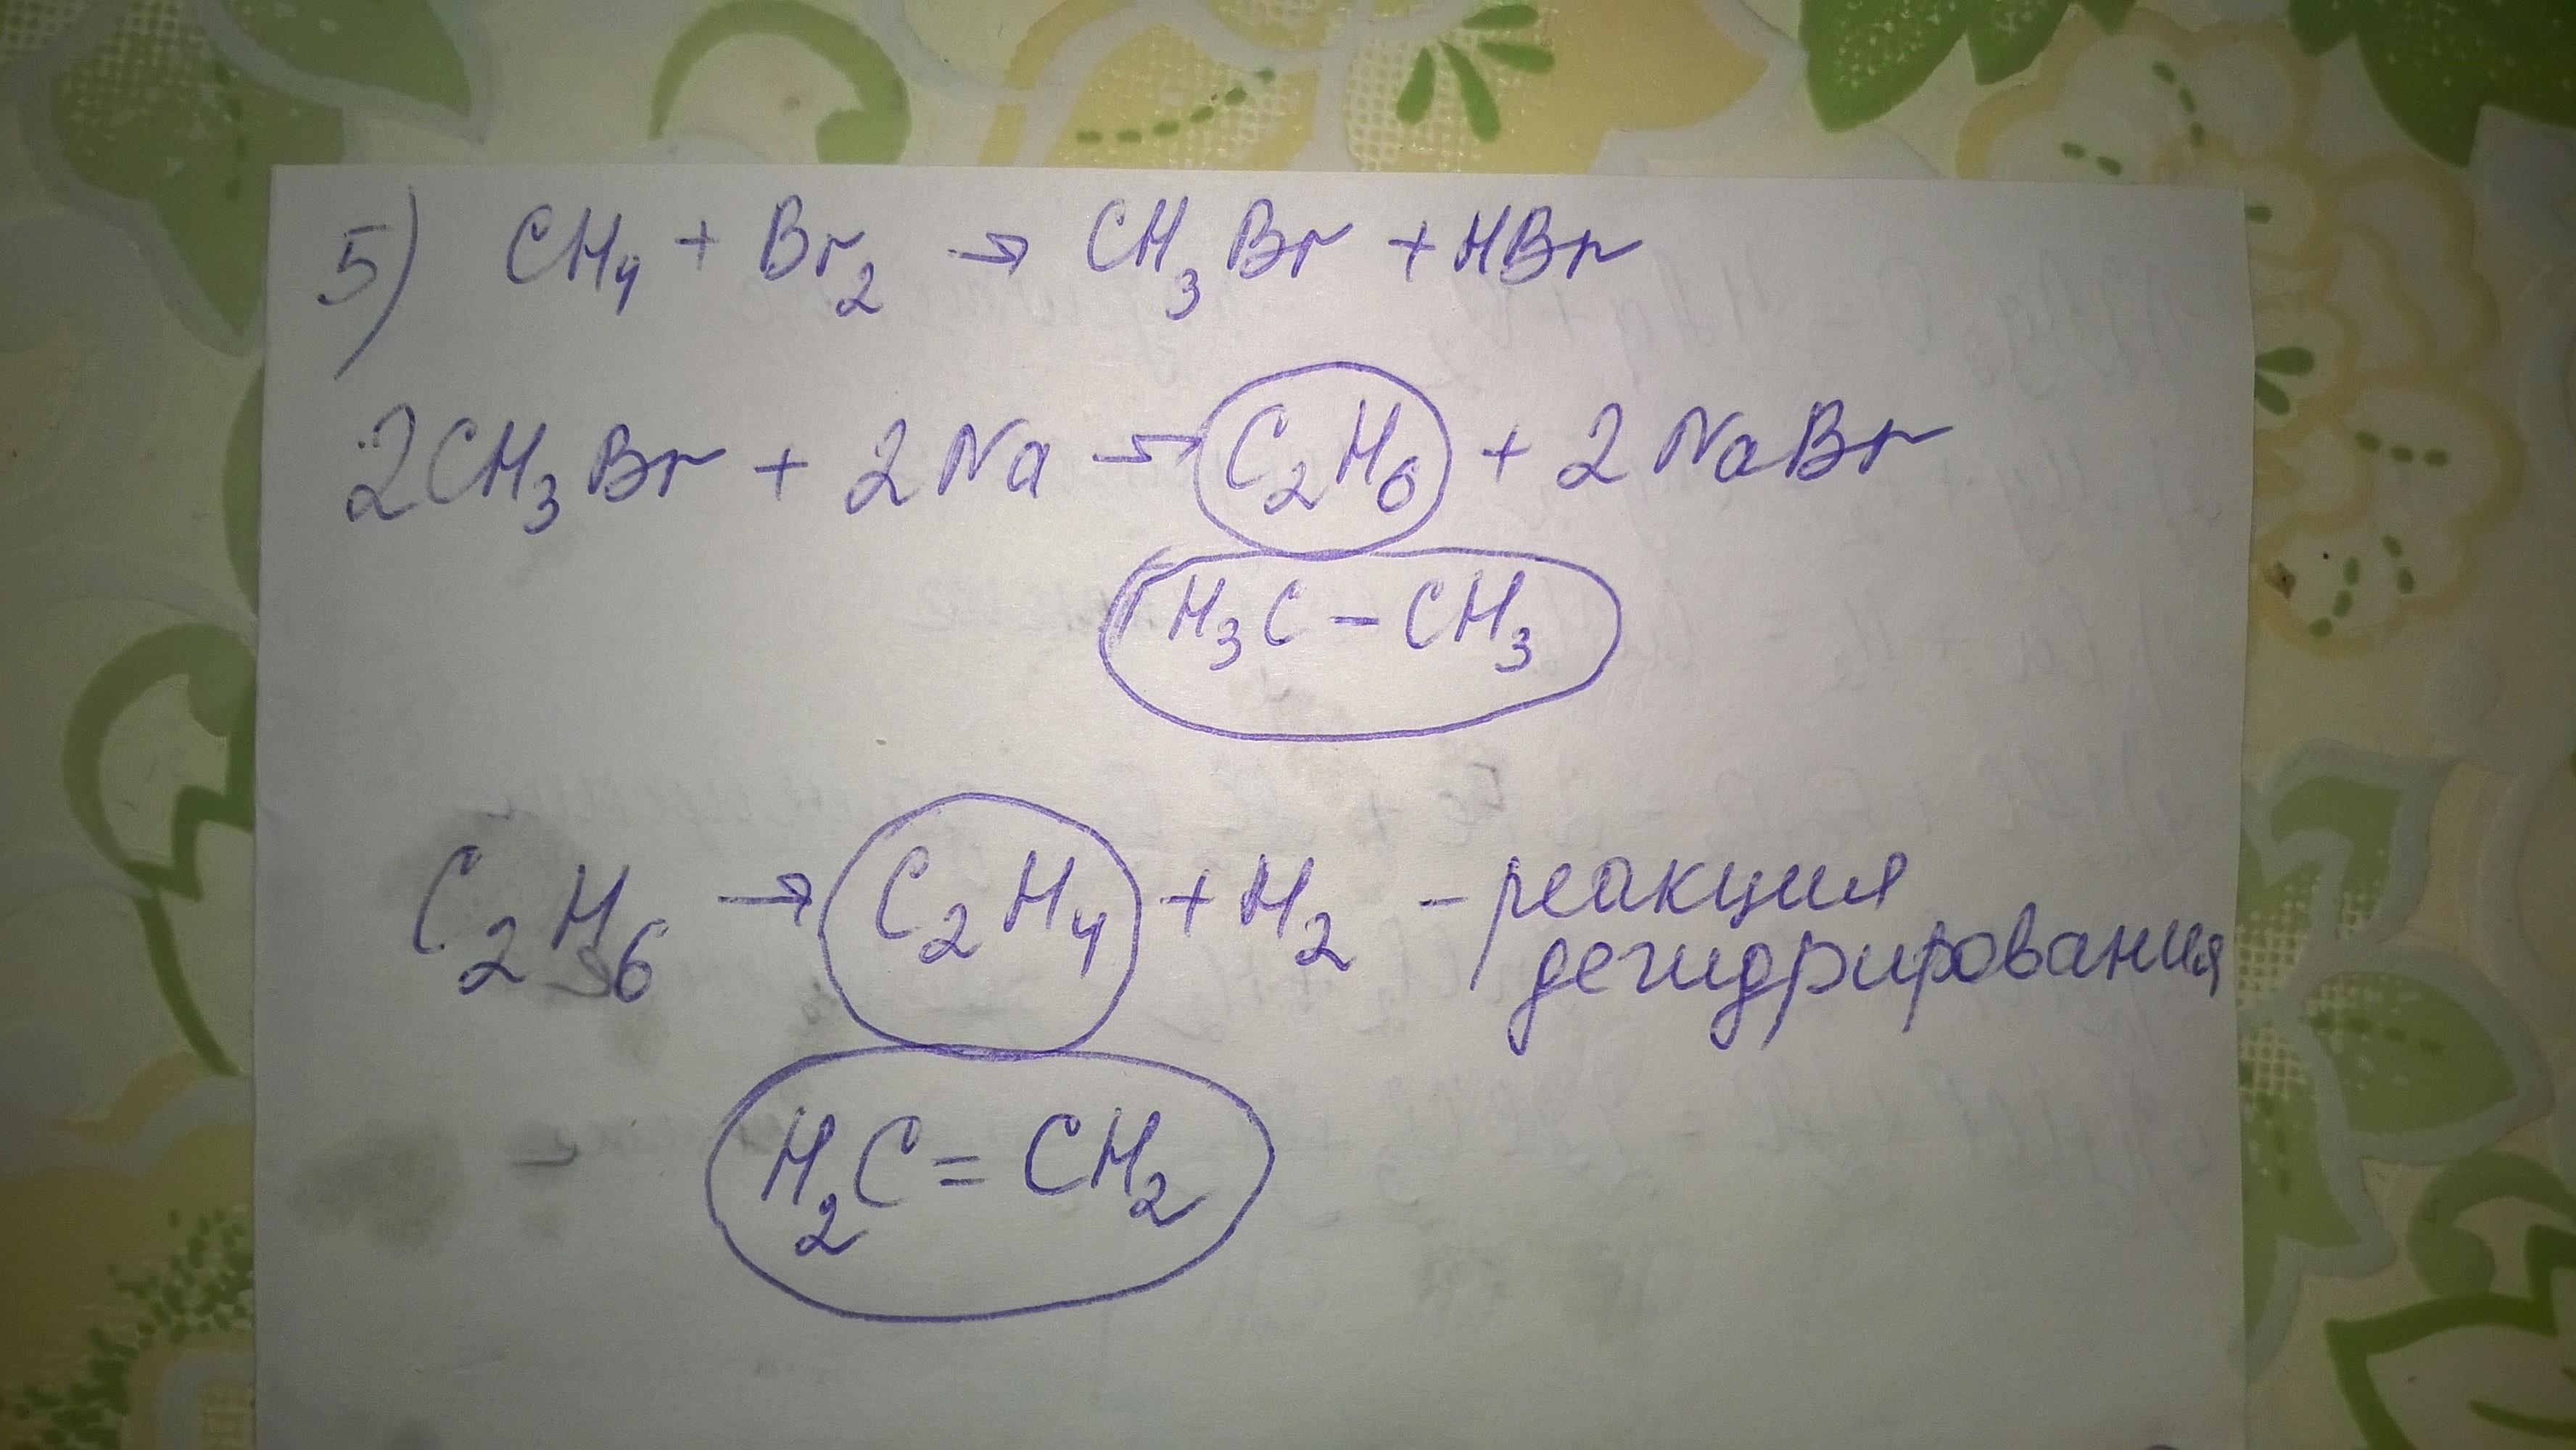 5) CH₄ + Br₂ → CH₃Br + HBr
2CH₃Br + 2Na → C₂H₆ + 2NaBr
H₃C – CH₃
C₂H₆ → C₂H₄ + H₂ – реакция
дегидрирования
H₂C = CH₂